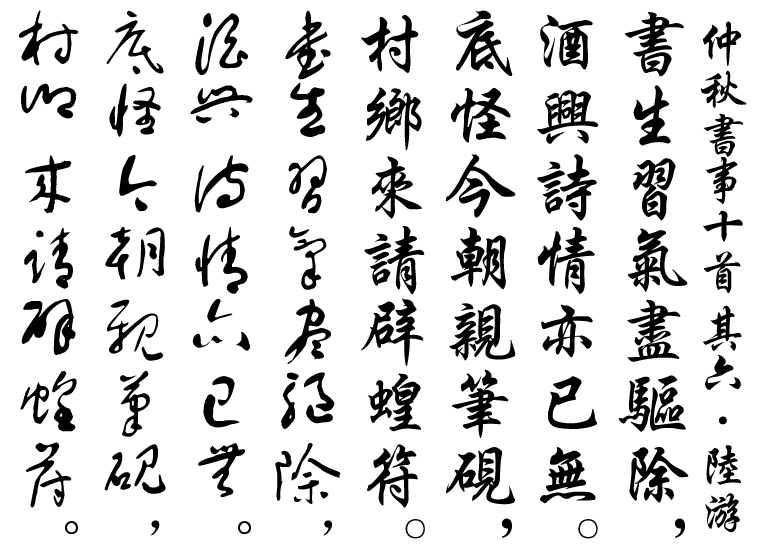 仲秋書事十首 其六·陸游
書生習氣盡驅除，
酒興詩情亦已無。
底怪今朝親筆硯，
村鄉來請辟蝗符。
書生習氣盡驅除，
酒興詩情亦已無。
底怪今朝親筆硯，
村鄉來請辟蝗符。